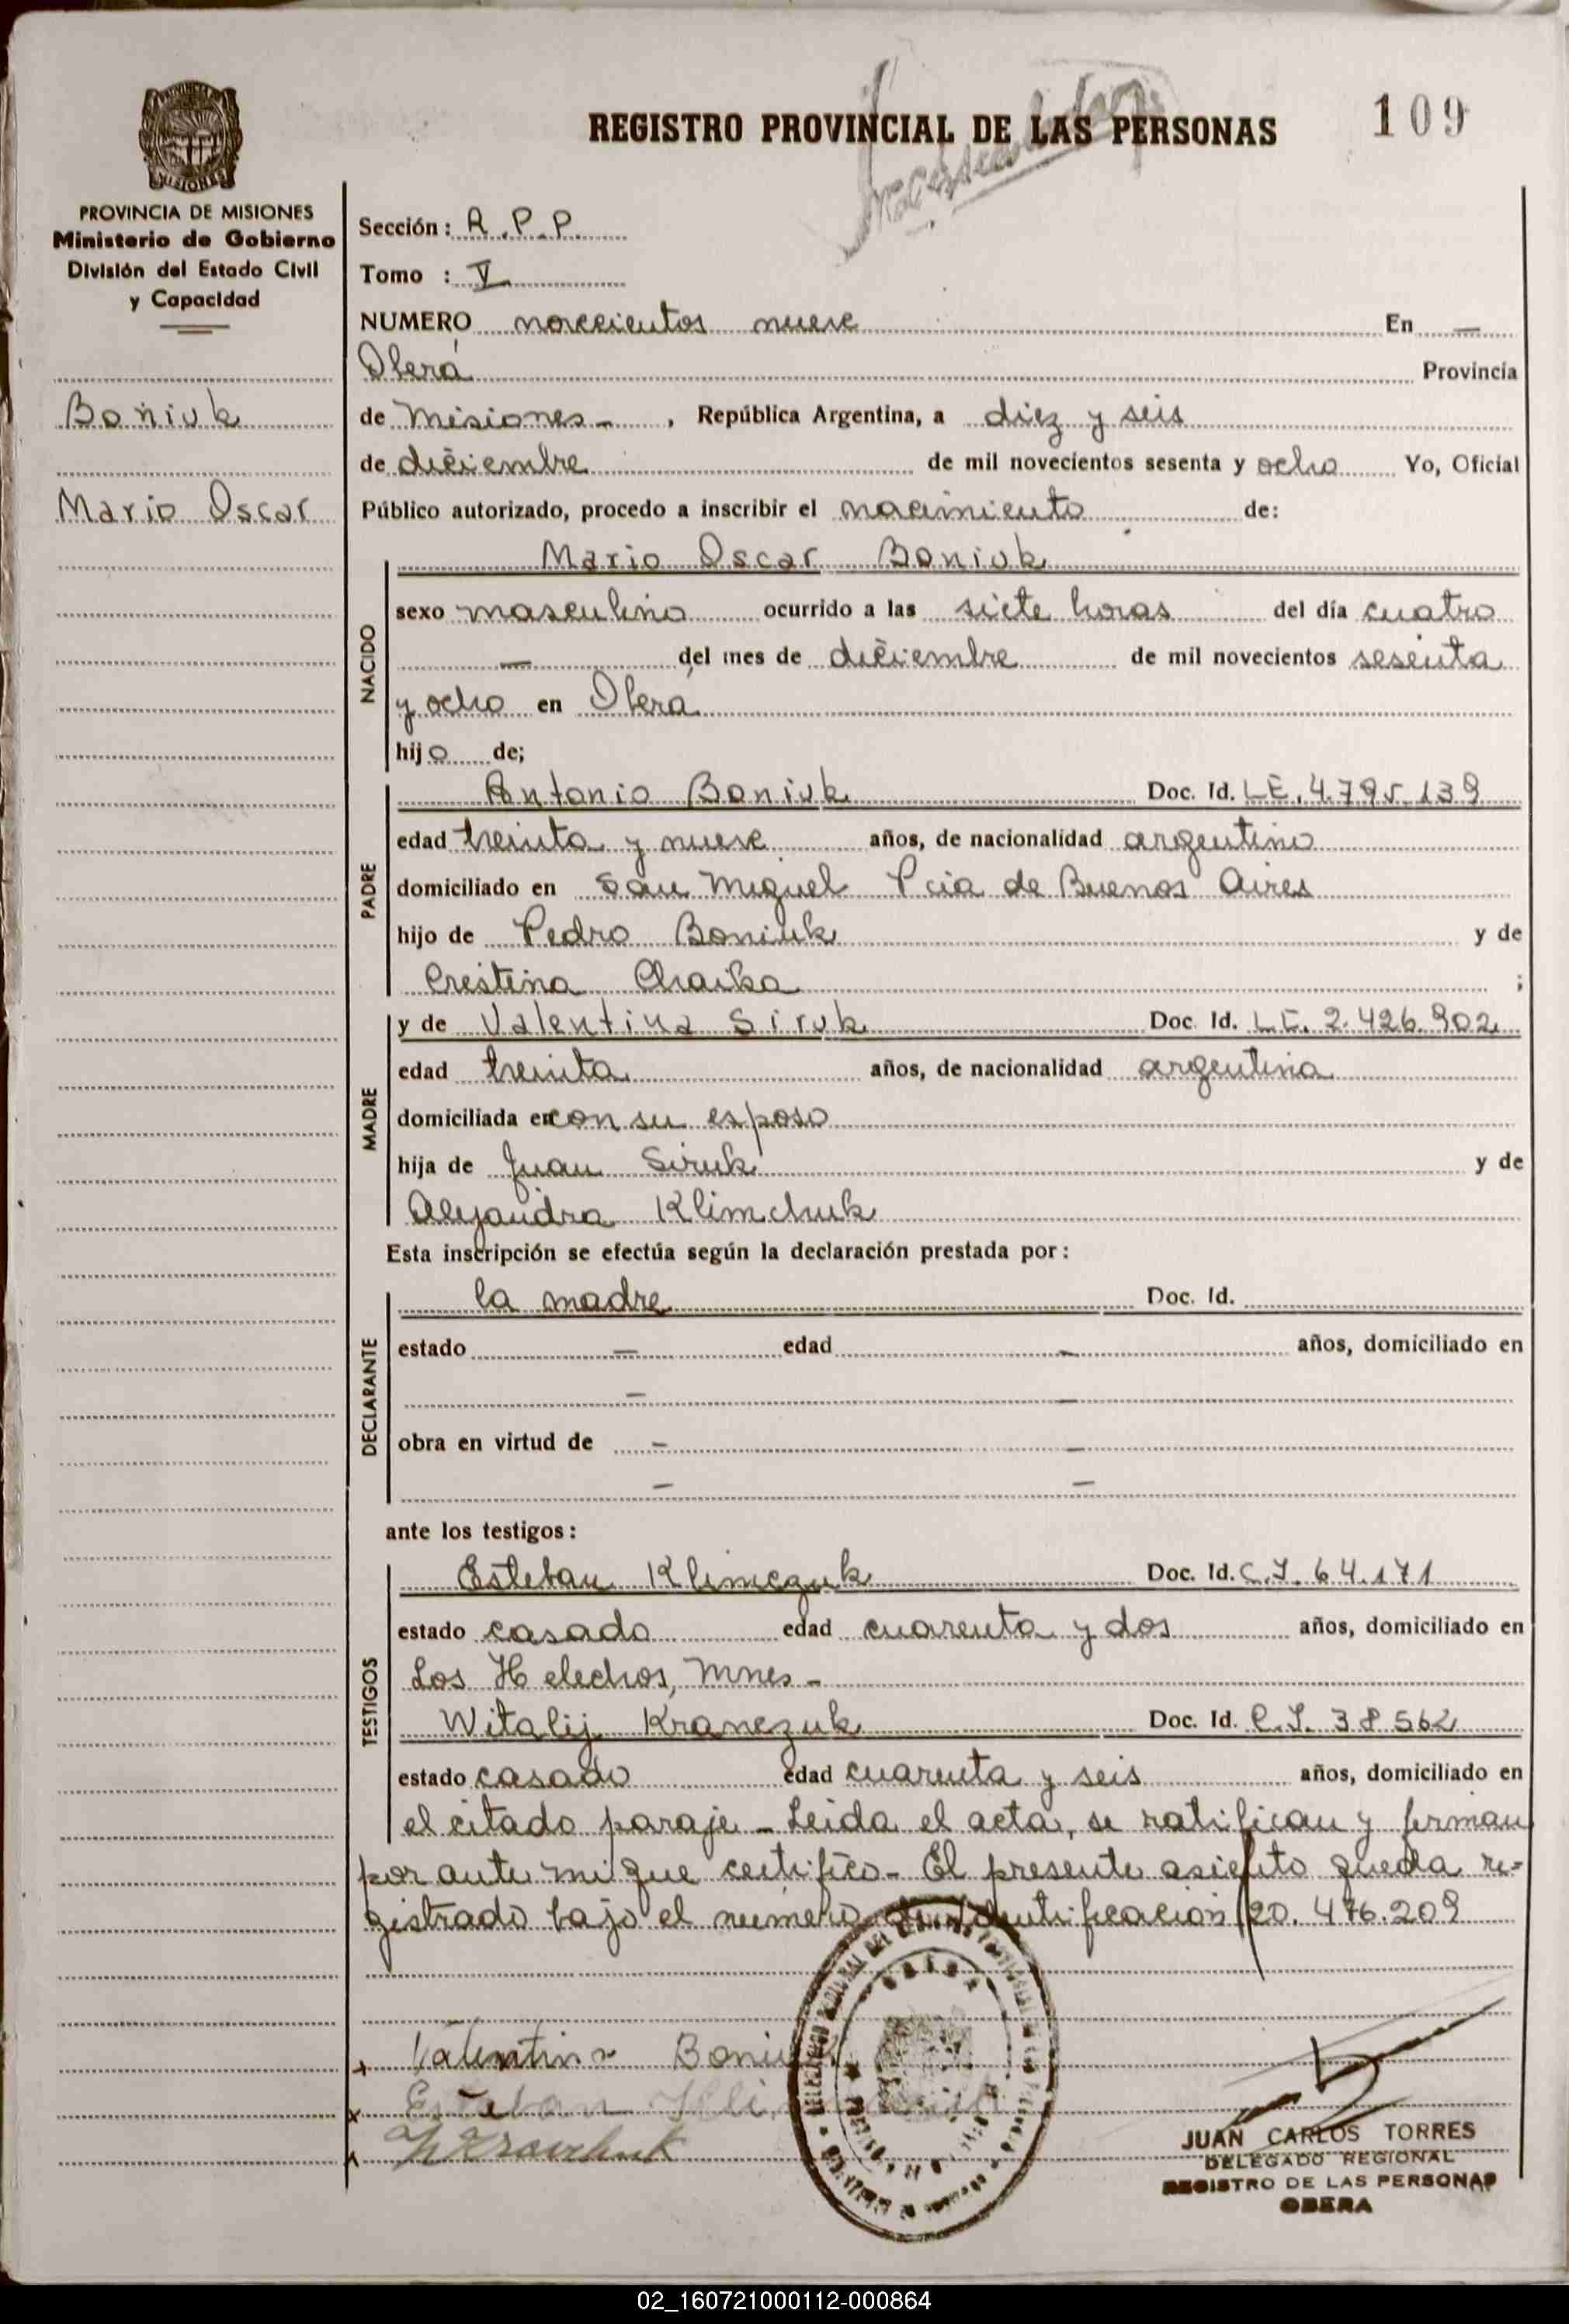 REGISTRO PROVINCIAL DE LAS PERSONAS
109
MISIONES
PROVINCIA DE MISIONES
Ministerio de Gobierno
División del Estado Civil
y Capacidad
Boniuk
Mario Oscar
Sección: R.P.P.
Tomo : V
NUMERO novecientos nueve En —
Oberá Provincia
de Misiones - , República Argentina, a diez y seis
de diciembre de mil novecientos sesenta y ocho Yo, Oficial
Público autorizado, procedo a inscribir el nacimiento de:
NACIDO
Mario Oscar Boniuk
sexo masculino ocurrido a las siete horas del día cuatro
— del mes de diciembre de mil novecientos sesenta
y ocho en Oberá
hijo de;
PADRE
Antonio Boniuk Doc. Id. L.E. 4.795.139
edad treinta y nueve años, de nacionalidad argentino
domiciliado en San Miguel Pcia de Buenos Aires
hijo de Pedro Boniuk y de
Cristina Chaika ;
MADRE
y de Valentina Siruk Doc. Id. L.C. 2.426.902
edad treinta años, de nacionalidad argentina
domiciliada en con su esposo
hija de Juan Siruk y de
Alejandra Klimchuk
Esta inscripción se efectúa según la declaración prestada por:
DECLARANTE
la madre Doc. Id.
estado — edad - años, domiciliado en
— —
obra en virtud de - -
— —
ante los testigos:
TESTIGOS
Esteban Klimczuk Doc. Id. C.I. 64.171
estado casado edad cuarenta y dos años, domiciliado en
Los Helechos, Mnes -
Witalij Kranczuk Doc. Id. C.I. 38562
estado casado edad cuarenta y seis años, domiciliado en
el citado paraje - Leida el acta, se ratifican y firman
por ante mi que certifico - El presente asiento queda re=
gistrado bajo el número de identificación 20.476.209
x Valentina Boniuk
x Esteban
x
JUAN CARLOS TORRES
DELEGADO REGIONAL
REGISTRO DE LAS PERSONAS
OBERA
02_160721000112-000864